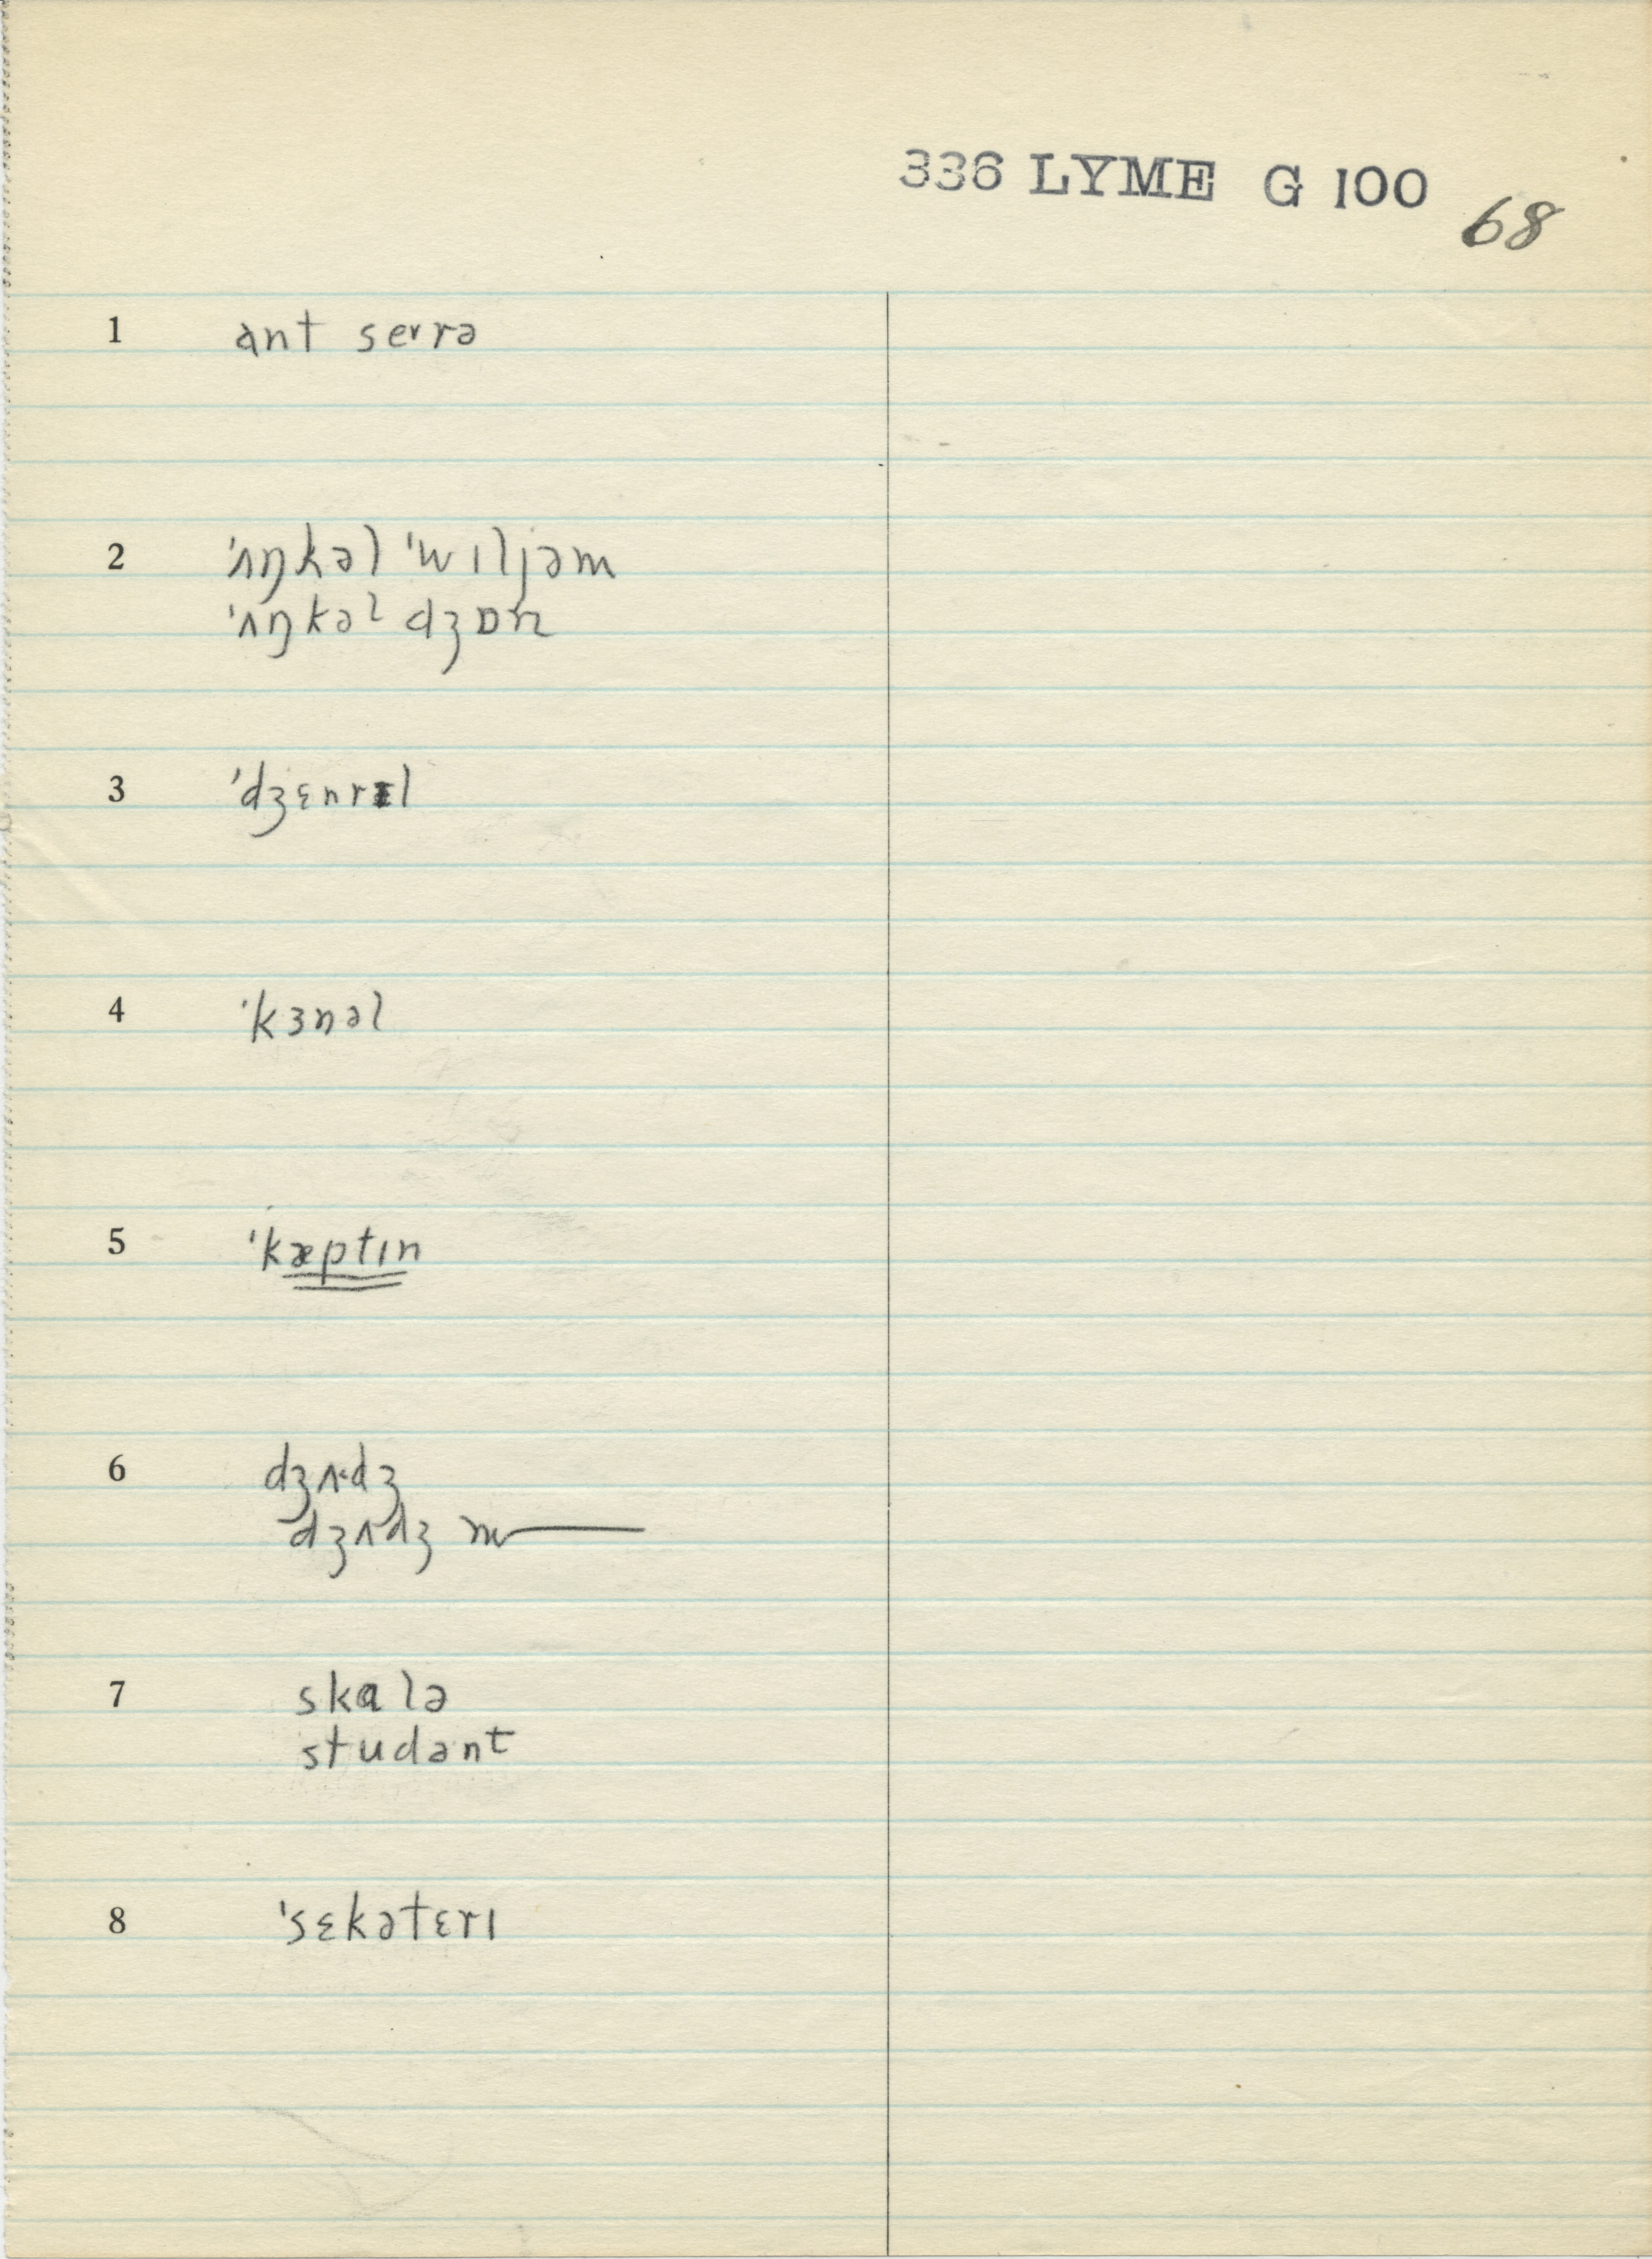 336 LYME G 100
68
1 ant seɪrə
2 ˈʌŋkəl ˈwɪljəm
ˈʌŋkəl dʒɒn
3 ˈdʒɛnrɪl
4 ˈkɜnəl
5 ˈkæptɪn
6 dʒʌˑdʒ
dʒʌdʒ m
7 skɑlə
studənt
8 ˈsɛkətɛrɪ